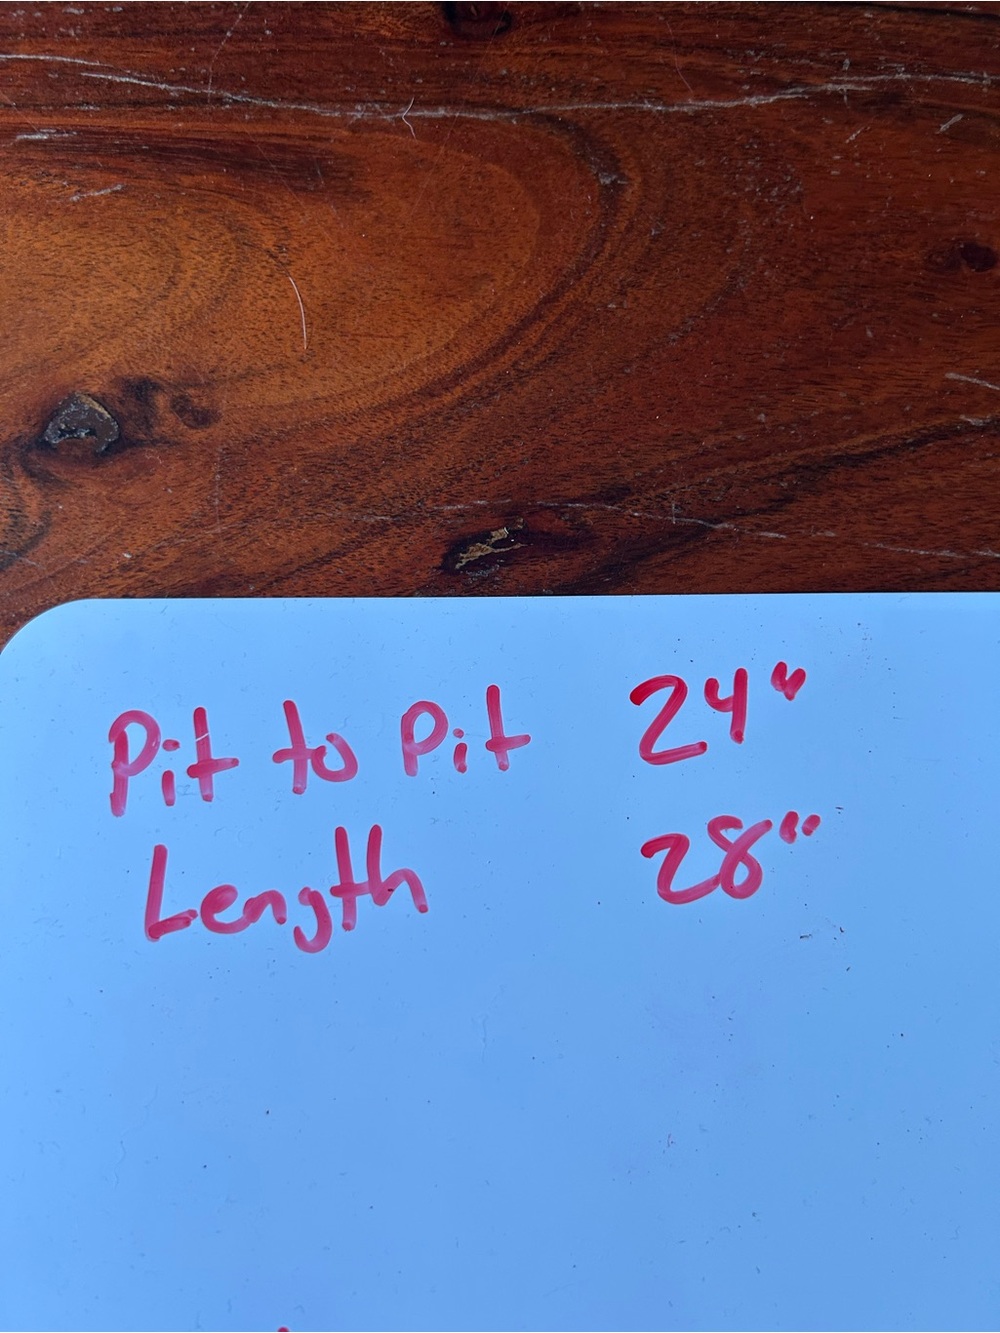 Pit to Pit 24"
Length 28"